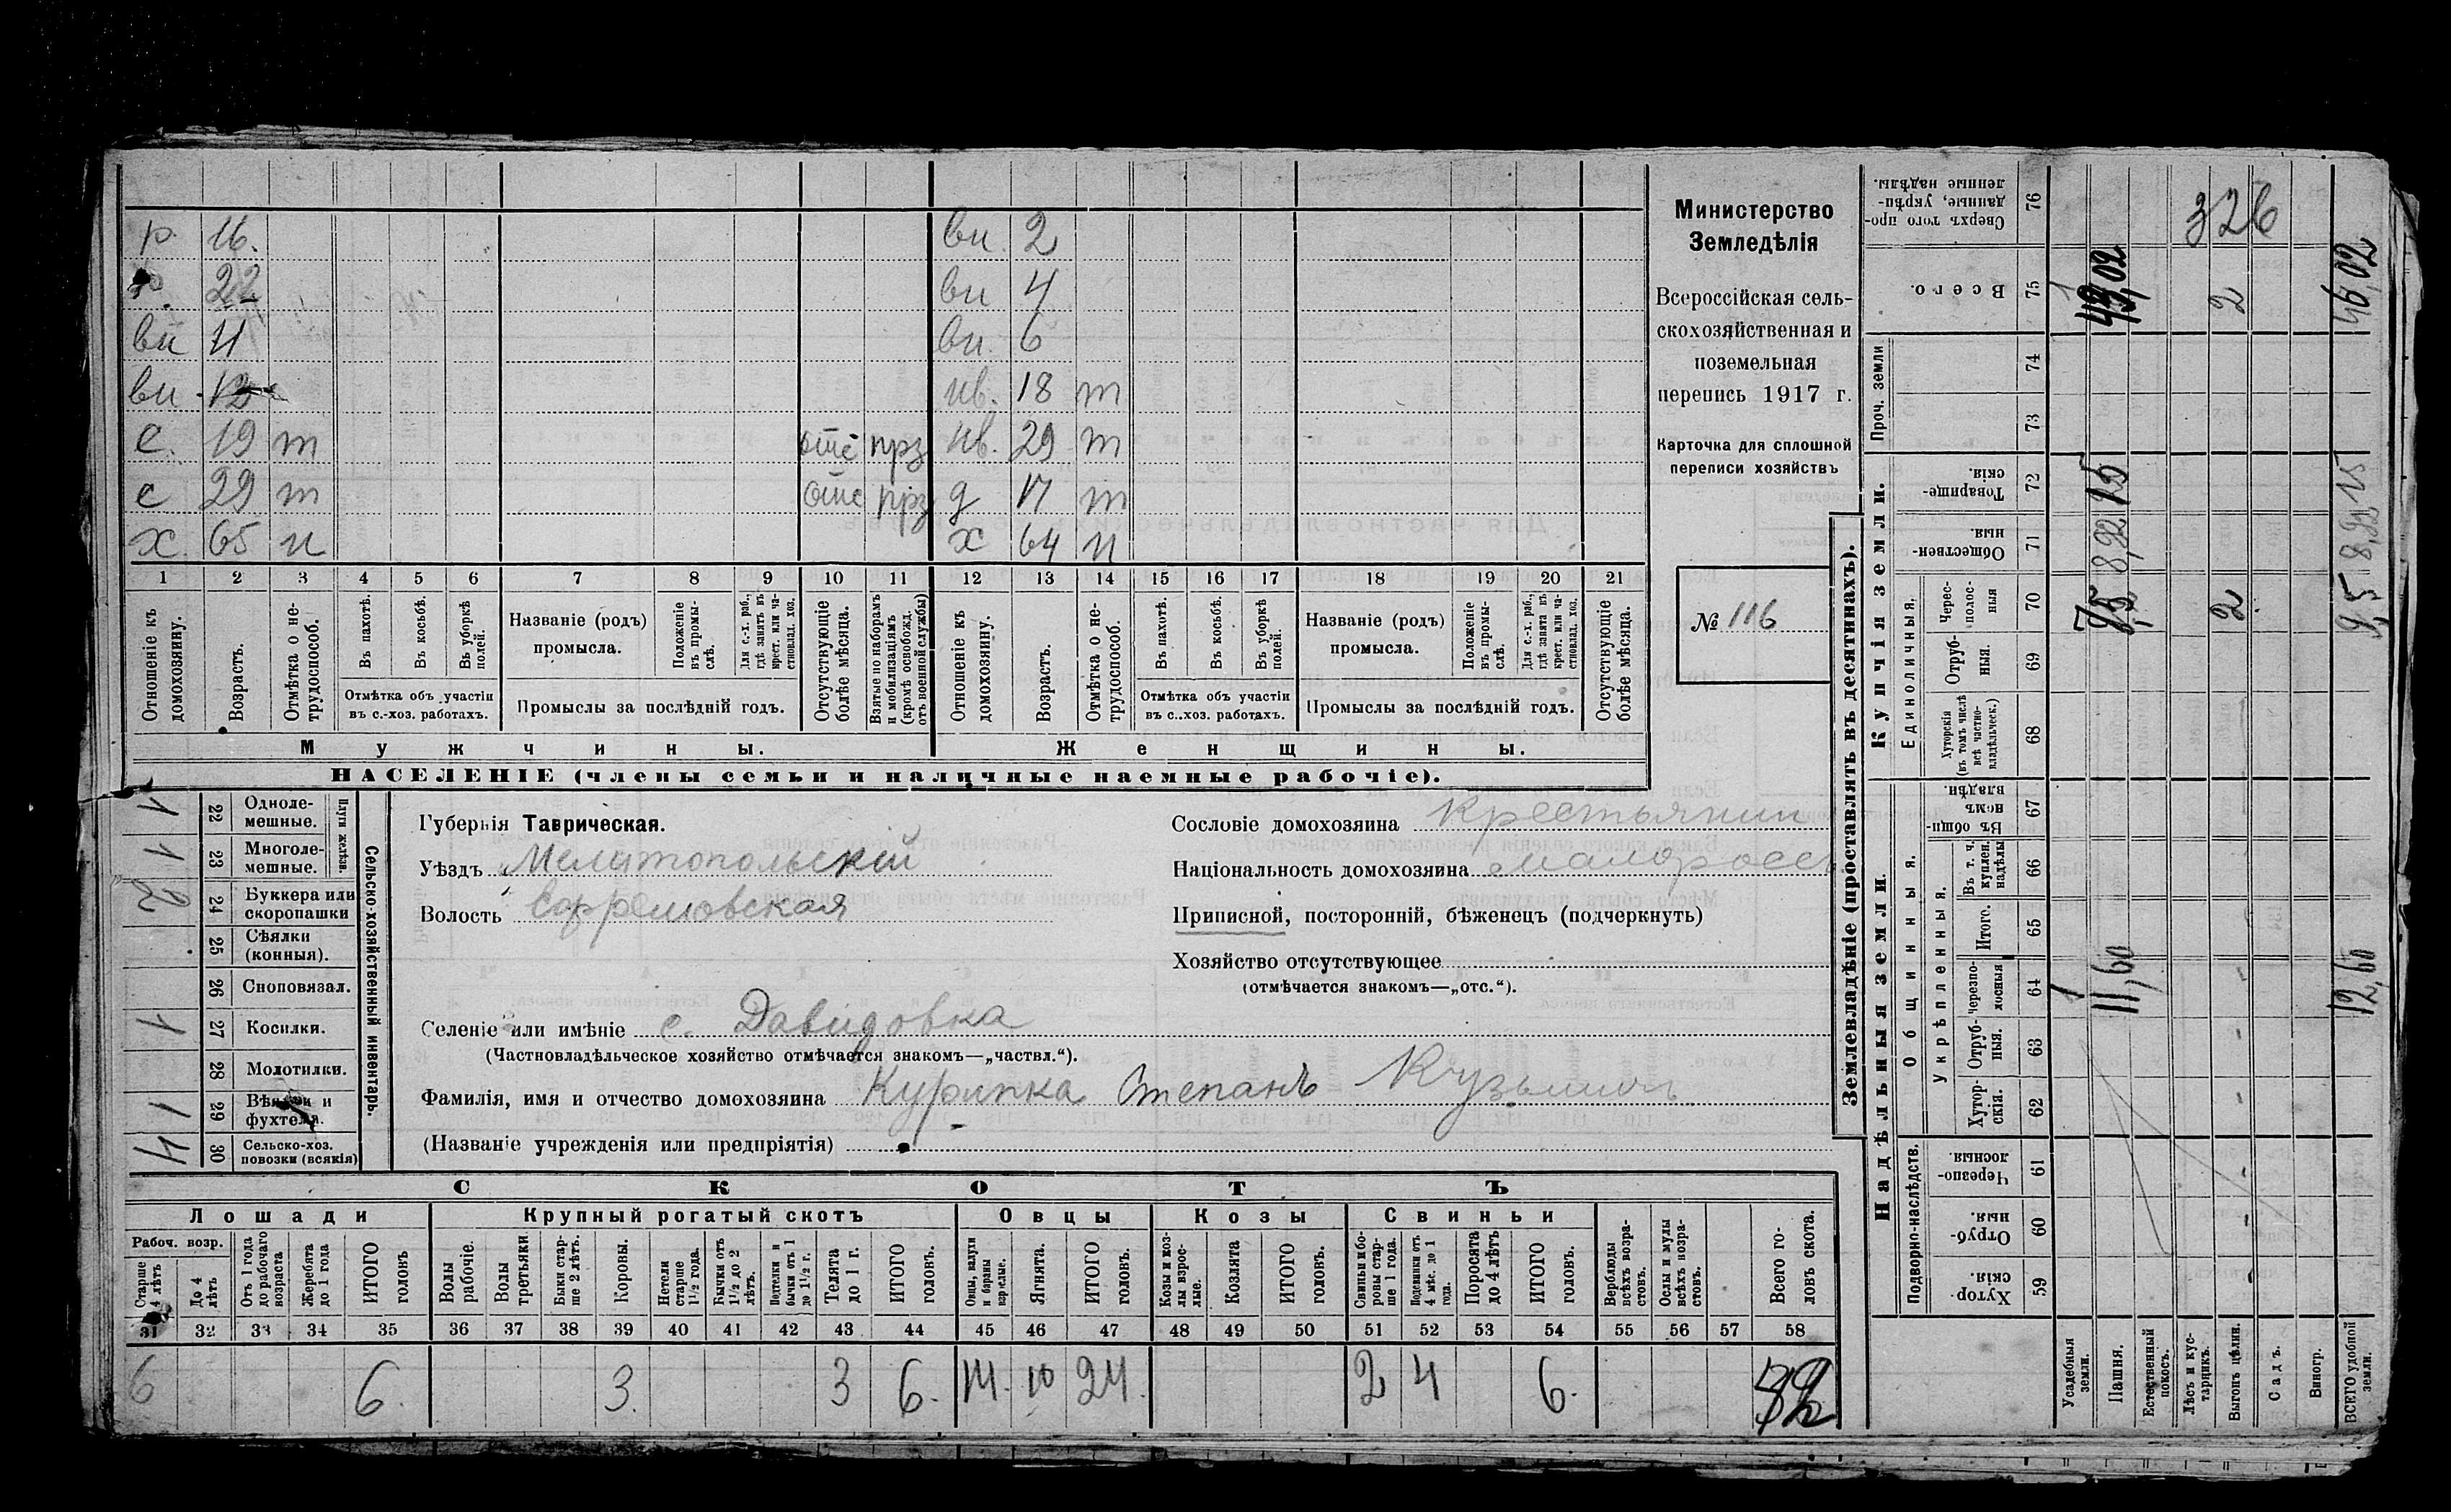 Министерство
Земледѣлія
Всероссійская сель-
скохозяйственная и
поземельная
перепись 1917 г.
Карточка для сплошной
переписи хозяйствъ
№ 116
р. 16. вн. 2
р. 22 вн 4
вн 4 вн. 6
вн. 12 нв. 18 т
с. 19 т отс прз нв. 29 т
с 29 т отс прз д 17 т
х. 65 н х 64 н
1 2 3 4 5 6 7 8 9 10 11 12 13 14 15 16 17 18 19 20 21
Отношеніе къ домохозяину.
Возрастъ.
Отмѣтка о не-трудоспособ.
Въ пахотѣ.
Въ косьбѣ.
Въ уборкѣ полей.
Отмѣтка объ участіи въ с.-хоз. работахъ.
Названіе (родъ) промысла.
Положеніе въ промы-слѣ.
Для с.-х. раб., гдѣ занятъ въ крест. или ча-стновлад. хоз.
Промыслы за послѣдній годъ.
Отсутствующіе болѣе мѣсяца.
Взятые по наборамъ и мобилизаціямъ (кромѣ освобожд. отъ военной службы)
Отношеніе къ домохозяину.
Возрастъ.
Отмѣтка о не-трудоспособ.
Въ пахотѣ.
Въ косьбѣ.
Въ уборкѣ полей.
Отмѣтка объ участіи въ с.-хоз. работахъ.
Названіе (родъ) промысла.
Положеніе въ промы-слѣ.
Для с.-х. раб., гдѣ занята въ крест. или ча-стновлад. хоз.
Промыслы за послѣдній годъ.
Отсутствующіе болѣе мѣсяца.
Мужчины. Женщины.
НАСЕЛЕНІЕ (члены семьи и наличные наемные рабочіе).
Сельско-хозяйственный инвентарь.
Плуги желѣзн.
22 Одноле-мешные. 1
23 Многоле-мешные. 1
24 Буккера или скоропашки 2
25 Сѣялки (конныя).
26 Сноповязал.
27 Косилки. 1
28 Молотилки.
29 Вѣялки и фухтеля. 1
30 Сельско-хоз. повозки (всякія) 4
Губернія Таврическая.
Уѣздъ Мелитопольскій
Волость Ефремовская
Селеніе или имѣніе с. Давидовка
(Частновладѣльческое хозяйство отмѣчается знакомъ—„частвл.“).
Фамилія, имя и отчество домохозяина Курипка Степанъ Кузьмичъ
(Названіе учрежденія или предпріятія)
Сословіе домохозяина Крестьянин
Національность домохозяина малоросс
Приписной, посторонній, бѣженецъ (подчеркнуть)
Хозяйство отсутствующее
(отмѣчается знакомъ—„отс.“).
СКОТЪ
Лошади Крупный рогатый скотъ Овцы Козы Свиньи
Рабоч. возр.
Старше 4 лѣтъ
До 4 лѣтъ
Отъ 1 года до рабочаго возраста
Жеребята до 1 года
ИТОГО головъ
Волы рабочіе.
Волы третьяки.
Быки стар-ше 2 лѣтъ.
Коровы.
Нетели старше 1½ года.
Бычки отъ 1½ до 2 лѣтъ.
Подтелки и бычки отъ 1 до 1½ г.
Телята до 1 г.
ИТОГО головъ.
Овцы, валухи и бараны взрослые.
Ягнята.
ИТОГО головъ.
Козы и коз-лы взрос-лые.
Козлята
ИТОГО головъ.
Свиньи и бо-ровы стар-ше 1 года.
Подсвинки отъ 4 мѣс. до 1 года.
Поросята до 4 лѣтъ
ИТОГО головъ.
Верблюды всѣхъ возра-стовъ.
Ослы и мулы всѣхъ возра-стовъ.
Всего го-ловъ скота.
31 32 33 34 35 36 37 38 39 40 41 42 43 44 45 46 47 48 49 50 51 52 53 54 55 56 57 58
6 6. 3. 3 6. 14. 10 24. 2 4 6.
Землевладѣніе (проставлять въ десятинахъ).
Надѣльныя земли.
Подворно-наслѣдств.
Хутор-скія. 59
Отруб-ныя. 60
Черезпо-лосныя 61
Общинныя.
Укрѣпленныя.
Хутор-скія. 62
Отруб-ныя. 63
Черезпо-лосныя 64
Итого. 65
Въ т. ч. куплен. надѣлы 66
Въ общин-номъ владѣн. 67
Купчія земли.
Единоличныя.
Хуторскія (въ томъ числѣ всѣ частно-владѣльческ.) 68
Отруб-ныя. 69
Черес-полос-ныя 70
Обществен-ныя 71
Товарище-скія. 72
Проч. земли
73 74
Всего. 75
Сверхъ того про-данные, укрѣп-ленные надѣлы. 76
Усадебныя земли. 1
Пашня. 11,60 8,92
Естественный покосъ.
Лѣсъ и кус-тарникъ.
Выгонъ цѣлин. 2. 2
Садъ.
Виногр.
ВСЕГО удобной земли. 12,60 9,5 8,92 15 46,02
326